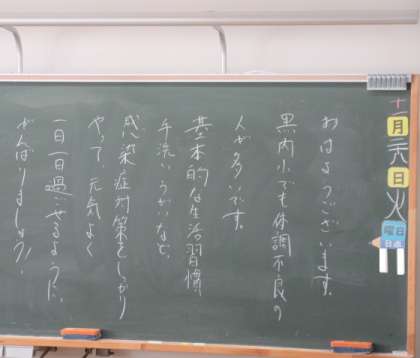 十一月二八日火曜日
日直
おはようございます。
黒内小でも体調不良の
人が多いです。
基本的な生活習慣
手洗い、うがいなど、
感染症対策をしっかり
やって、元気よく
一日一日過ごせるように、
がんばりましょう！